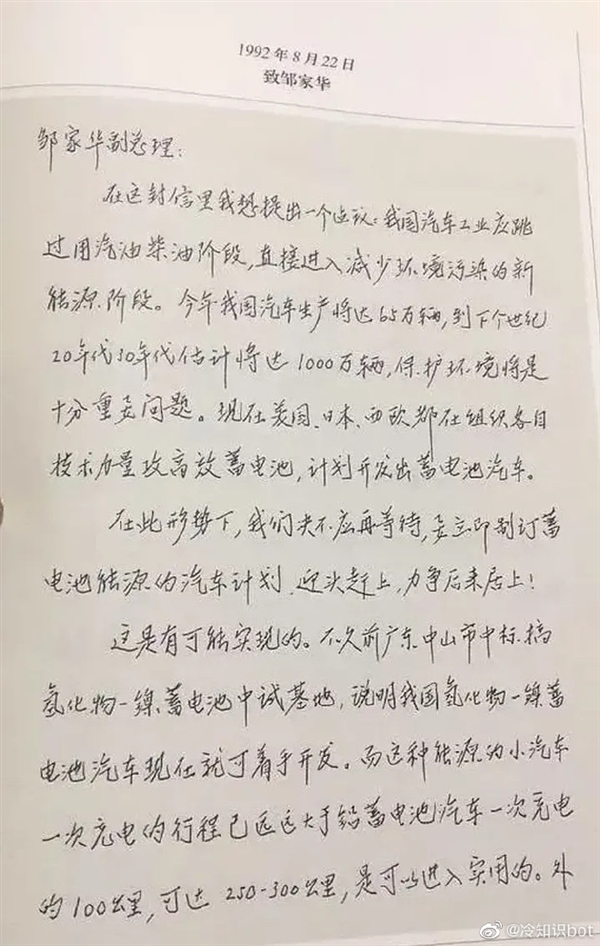 1992年8月22日
致邹家华
邹家华副总理:
在这封信里我想提出一个建议:我国汽车工业应跳
过用汽油柴油阶段,直接进入减少环境污染的新
能源阶段。今年我国汽车生产将达65万辆,到下个世纪
20年代30年代估计将达1000万辆,保护环境将是
十分重要问题。现在美国、日本、西欧都在组织各自
技术力量攻高效蓄电池,计划开发出蓄电池汽车。
在此形势下,我们决不应再等待,要立即制订蓄
电池能源的汽车计划,迎头赶上,力争后来居上!
这是有可能实现的。不久前广东中山市中标搞
氢化物—镍蓄电池中试基地,说明我国氢化物—镍蓄
电池汽车现在就可着手开发。而这种能源的小汽车
一次充电的行程已远远大于铅蓄电池汽车一次充电
的100公里,可达250-300公里,是可以进入实用的。外
@冷知识bot